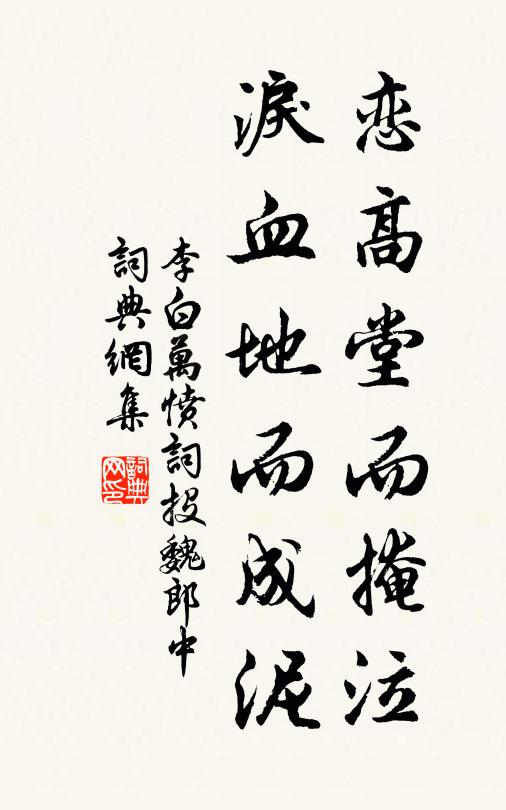 恋高堂而掩泣
淚血地而成泥
李白萬憤詞投魏郎中
詞典網集
詞典
网印